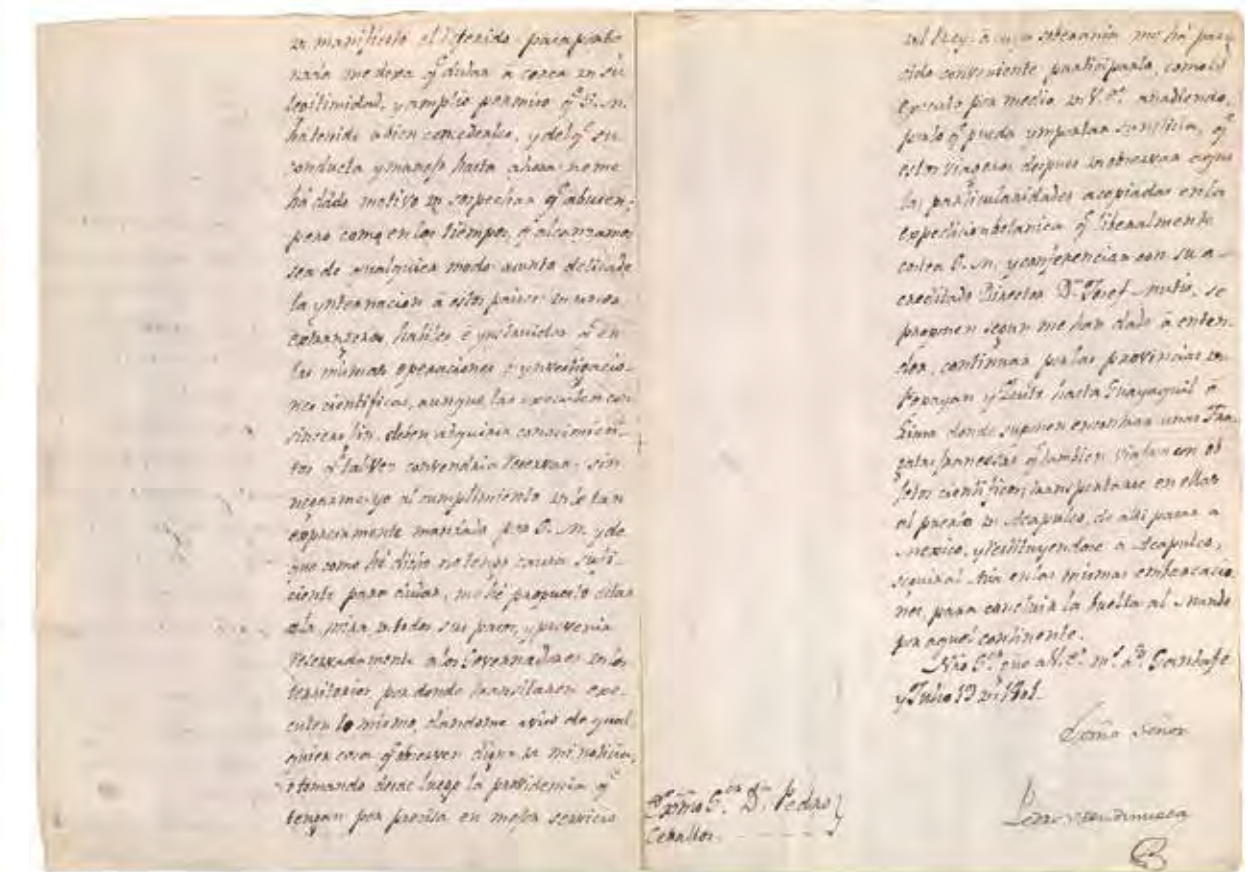 de manifiesto el
legitimidad, y amplio permiso q.e S. M.
ha tenido a bien concederles, y del q.e su
conducta y manejo hasta ahora no me
há dado motivo de sospechar q.e abusen;
pero como en los tiempos, q.e alcanzamos
sea de qualquiera modo asunto delicado
la ynternacion á estos paises de unos
extrangeros habiles é ynstruidos q.e en
las mismas operaciones é ynvestigacio-
nes cientificas, aunque las executen con
sincero fin, deben adquirir conocimien-
tos q.e tal vez convendria reservar; sin
negarme yo al cumplimiento de lo tan
expresamente mandado por S. M. y de
que como hé dicho no tengo causa sufi-
ciente para dudar, me hé propuesto estar
á la mira de todos sus pasos, y prevenir
reservadamente a los Governadores de los
territorios por donde transitaren exe-
cuten lo mismo, dandome aviso de qual-
quiera cosa q.e observen digna de mi noticia,
ó tomando desde luego la providencia q.e
tengan por precisa en mejor servicio
del Rey. á cuya soberania me há pare-
cido conveniente participarlo, como lo
executo por medio de V. E.a añadiendo,
por lo q.e pueda ymportar su noticia, q.e
estos viageros despues de observar aqui
las particularidades acopiadas en la
expedicion botanica q.e liberalmente
costea S. M. y conferenciar con su a-
creditado Director D.n Josef Mutis, se
proponen segun me han dado á enten-
der, continuar por las provincias de
Popayan y Quito hasta Guayaquil ó
Lima donde suponen encontrar unas Fra-
gatas francesas q.e tambien viajan con ob-
jetos cientificos; transportarse en ellas
al puerto de Acapulco, de alli pasar a
Mexico, y restituyendose a Acapulco,
seguir al Asia en las mismas embarcacio-
nes, para concluir la buelta al Mundo
por aquel continente.
Nro S.or gue a V. E.a m.s a.s Santafe
y Julio 19 de 1801.
Exmo Señor
Pedro Mendinueta
Exmo S.or D.n Pedro
Ceballos.